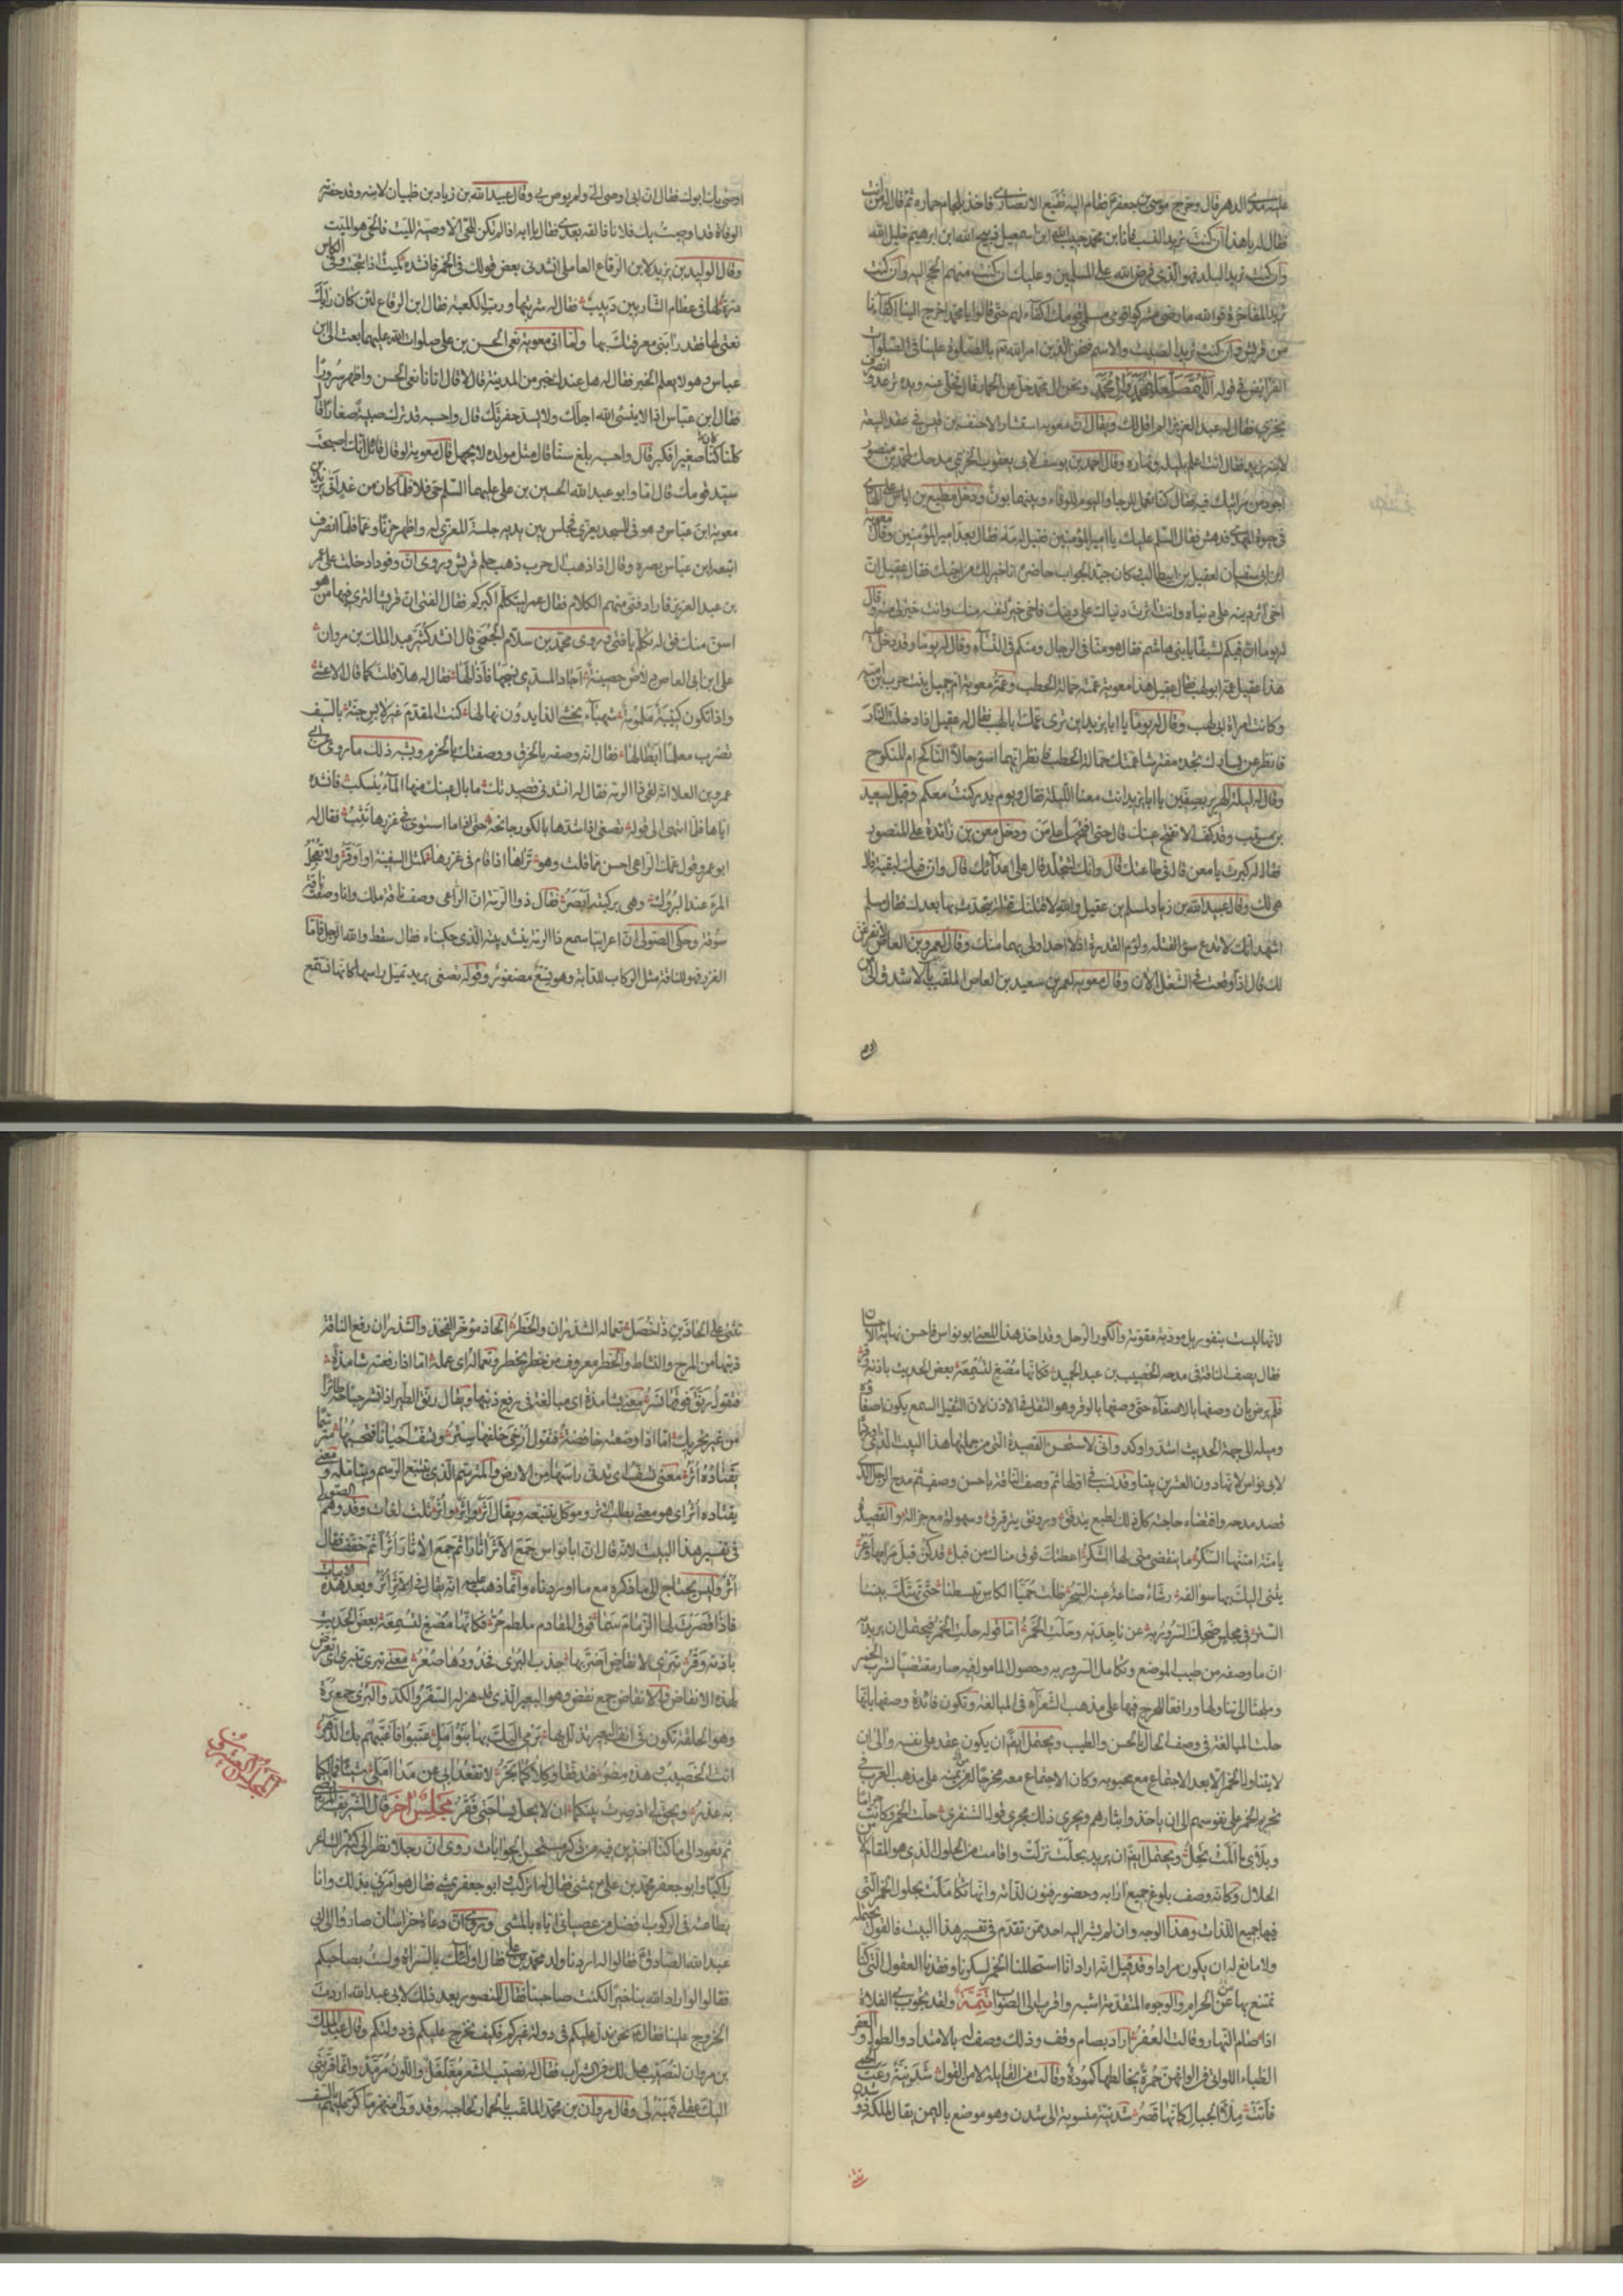 عليه مدى الدهر قال وخرج موسى بن جعفر ع فقام اليه نفيع الانصارى فاخذ بلجام حماره ثم قال له من انت
فقال له يا هذا ان كنت تريد النسب فانا ابن محمد حبيب الله ابن اسمعيل ذبيح الله ابن ابرهيم خليل الله
وان كنت تريد البلد فهو الذى فرض الله على المسلمين وعليك ان كنت منهم الحج اليه وان كنت
تريد المفاخرة فوالله ما رضى مشركوا قومى مسلمى قومك اكفاء لهم حتى قالوا يا محمد اخرج الينا اكفاءنا
من قريش وان كنت تريد الصيت والاسم فنحن الذين امر الله تع بالصلوة علينا فى الصلوات
الفرائض فى قوله اللهم صل على محمد وآل محمد ونحن آل محمد خل عن الحمار قال فخلى عنه ويده ترعد وانصرف
بخزى فقال له عبد العزيز الم اقل لك ويقال ان معوية استشار الاحنف بن قيس فى عقد البيعة
لابنه يزيد فقال انت اعلم بليله ونهاره وقال احمد بن يوسف لابى يعقوب الخريمى مدحك لمحمد بن منصور
اجود من مراثيك فيه فقال كنا نعمل للرجا واليوم للوفاء وبينهما بون ودخل مطيع بن اياس على الهادى
فى حيوة المهدى فدهش فقال السلم عليك يا امير المؤمنين فقيل له مه فقال بعد امير المؤمنين وقال معوية
ابن ابى سفيان لعقيل بن ابيطالب وكان جيد الجواب حاضره انا خير لك من اخيك فقال عقيل ان
اخى آثر دينه على دنياه وانت آثرت دنياك على دينك فاخى خير لنفسه منك وانت خير لى منه وقال
له يوما ان فيكم لشبقا يا بنى هاشم فقال هو منا فى الرجال ومنكم فى النساء وقال له يوما وقد دخل عليه
هذا عقيل عمه ابو لهب فقال عقيل هذا معوية عمته حمالة الحطب وعمة معوية ام جميل بنت حرب ابن امية
وكانت امراة ابى لهب وقال له يوما يا ابا يزيد اين ترى عمك ابا لهب فقال له عقيل اذا دخلت النار
فانظر عن يسارك تجده مفترشا عمتك حمالة الحطب فانظر ايهما اسوء حالا الناكح ام المنكوح
وقال له ليلة الهرير بصفين يا ابا يزيد انت معنا الليلة فقال ويوم بدر كنت معكم وقيل لسعيد
بن مسيب وقد كف الا تفتح عينك قال حتى افتحهما على من ودخل معن بن زائدة على المنصور
فقال له كبرت يا معن قال فى طاعتك قال وانك لتتجلد قال على اعدائك قال وان فيك لبقية قال
هى لك وقال عبيد الله بن زياد لمسلم بن عقيل والله لاقتلنك قتلة يتحدث بها بعدك فقال مسلم
اشهد انك لا تدع سوء القتلة ولؤم القدرة اذ لا احد اولى بهما منك وقال لعمرو بن العاص
لك قال اذا وقعت فى الشغل الآن وقال معوية لعمرو بن سعيد بن العاص الملقب بالاشدق الى من
اوصى
اوصى بك ابوك فقال ان ابى اوصى الى ولم يوص بى وقال عبيد الله بن زياد بن ظبيان لابنه وقد حضرته
الوفاة قد اوصيت بك فلانا فالقه بعدى فقال يا ابه اذا لم تكن للحى الا وصية الميت فالحى هو الميت
وقال الوليد بن يزيد لابن الرقاع العاملى انشدنى بعض قولك فى الخمر فانشده كميت اذا شجت وفى الكاس
وردة لها فى عظام الشاربين دبيب فقال له شربتها ورب الكعبة فقال ابن الرقاع لئن كان رابك
نعتى لها فقد رابنى معرفتك بها ولما اتى معوية نعى الحسن بن على صلوات الله عليهما بعث الى ابن
عباس وهو لا يعلم الخبر فقال له هل عندك خبر من المدينة قال لا قال اتانا نعى الحسن واظهر سرورا
فقال ابن عباس اذا لا ينسئ الله اجلك ولا يسد حفرتك قال واحسبه قد ترك صبية صغارا قال
كلنا كان صغيرا فكبر قال واحسبه بلغ سنا قال مثل مولده لا يجهل قال معوية لو قال قائل انك اصبحت
سيد قومك قال اما وابو عبد الله الحسين بن على عليهما السلم حى فلا فلما كان من غد اتى يزيد بن
معوية ابن عباس وهو فى المسجد يعزى فجلس بين يديه جلسة المعزى له واظهر حزنا وغما فلما انصرف
اتبعه ابن عباس بصره وقال اذا ذهب آل حرب ذهب حلم قريش وروى ان وفودا دخلت على عمر
بن عبد العزيز فاراد فتى منهم الكلام فقال عمر ليتكلم اكبركم فقال الفتى ان قريشا لترى فيها من هو
اسن منك فقال له تكلم يا فتى وروى محمد بن سلام الجمحى قال انشد كثير عبد الملك بن مروان
على ابن ابى العاص دلاص حصينة اجاد المسدى نسجها فاذالها فقال له هلا قلت كما قال الاعشى
واذا تكون كتيبة ملمومة شهباء يخشى الذايدون نهالها كنت المقدم غير لابس جنة بالسيف
تضرب معلما ابطالها فقال انه وصفه بالخرق ووصفتك بالحزم ويشبه ذلك ما روى عن ابى
عمرو بن العلا انه لقى ذا الرمة فقال له انشدنى قصيدتك ما بال عينك منها الماء ينسكب فانشده
اياها فلما انتهى الى قوله تصغى اذا شدها بالكور جانحة حتى اذا ما استوى فى غرزها تثب فقال له
ابو عمرو قول عمك الراعى احسن مما قلت وهو تراها اذا قام فى غرزها كمثل السفينة او اوقر ولا تعجل
المرء عند البروك وهى بركبته ابصر فقال ذو الرمة ان الراعى وصف ناقة ملك وانا وصفت ناقة
سوقة وحكى الصولى ان اعرابيا سمع ذا الرمة ينشد بيته الذى حكيناه فقال سقط والله الرجل فاما
الغرز فهو للناقة مثل الركاب للدابة وهو نسع مضفور وقوله تصغى يريد تميل راسها كانها تسمع
لانها ليست بنفور بل مودبة مقومة والكور الرحل وقد اخذ هذا المعنى ابو نواس فاحسن نهاية الاحسان
فقال يصف الناقة فى مدحه الخصيب بن عبد الحميد فكانها مصغ لتسمعه بعض الحديث باذنه وقر
فلم يرض بان وصفها بالاصغاء حتى وصفها بالوقر وهو الثقل فى الاذن لان الثقيل السمع يكون اصغاؤه
وميله الى جهة الحديث اشد واوكد وانى لاستحسن القصيدة التى من جملتها هذا البيت
لابى نواس لانها دون العشرين بيتا وقد نسب فى اولها ثم وصف الناقة باحسن وصف ثم مدح الرجل الذى
قصد مدحه واقتضاه حاجته كل ذلك بطبع يتدفق ورونق يترقرق وسهولة مع جزالة والقصيدة
يا منة امتنها السكر ما ينقضى منى لها الشكر اعطتك فوق مناك من قبل قد كن قبل مرامها وعر
يثنى اليك بها سوالفه رشاء صناعة عينه السحر ظلت حميا الكاس تبسطنا حتى تهتك بيننا
الستر فى مجلس ضحك السرور به عن ناجذيه وحلت الخمر اما قوله حلت الخمر فيحتمل ان يريد به
ان ما وصفه من طيب الموضع وتكامل السرور به وحصول المامول فيه صار مقتضيا لشرب الخمر
وملجئا الى تناولها ورافعا للحرج فيها على مذهب الشعراء فى المبالغة وتكون فائدة وصفها بانها
حلت المبالغة فى وصف الحال بالحسن والطيب ويحتمل ايضا ان يكون عقد على نفسه والى ان
لا يتناول الخمر الا بعد الاجتماع مع محبوبه وكان الاجتماع معه مخرجا له من يمينه على مذهب العرب فى
تحريم الخمر على نفوسهم الى ان ياخذوا بثارهم ويجرى ذلك مجرى قول الشنفرى حلت الخمر وكانت حراما
وبلاى ما المت تحل ويحتمل ايضا ان يريد بحلت نزلت واقامت من الحلول الذى هو المقام لا من
الحلال وكانه وصف بلوغ جميع آرابه وحضور فنون لذاته وانها تكاملت بحلول الخمر التى
فيها جميع اللذات وهذا الوجه وان لم يشر اليه احد ممن تقدم فى تفسير هذا البيت فالقول يحتمله
ولا مانع له ان يكون مرادا وقد قيل انه اراد انا استحللنا الخمر لسكرنا وفقدنا العقول التى كنا
نمتنع بها عن الحرام والوجوه المتقدمة اشبه واقرب الى الصواب تتمة ولقد تجوب بى الفلاة
اذا صام النهار وقالت العفر اراد بصام وقف وذلك وصف له بالامتداد والطول والعفر
الظباء اللواتى فى الوانهن حمرة يخالطها كمودة وقالت من القايلة لا من القول شدنية رعت الحمى
فاتت ملء الحبال كانها قصر شدنية منسوبة الى شدن وهو موضع باليمن يقال لملكه ذو شدن
تثنى على الحاذين ذا خصل تعماله الشذران والخطر الحاذ مؤخر الفخذ والشذران رفع الناقة
ذنبها من المرح والنشاط والخطر معروف من خطر يخطر وتعماله اى عمله اما اذا رفعته شامذة
فتقول رنق فوقها نسر معنى شامذة اى مبالغة فى رفع ذنبها ويقال رنق الطير اذا نشر جناحه طائرا
من غير تحريك اما اذا وضعته خافضة فتقول ارخى خلفها ستر وتسف احيانا فتحسبها مترسما
يقتاده اثر معنى تسف اى تدنى راسها من الارض والمترسم الذى يتتبع الرسم ويتامله ومعنى
يقتاده اثر اى هو معنى بطلب الاثر وموكل بتتبعه ويقال اثر واثر واثر ثلث لغات وقد وهم الصولى
فى تفسير هذا البيت لانه قال ان ابا نواس جمع الاثر اثارا ثم جمع الاثار اثرا ثم خفف فقال
اثر وليس يحتاج الى ما ذكره مع ما اوردناه وانما ذهب عليه انه يقال فى الاثر اثر وبعد هذه الابيات
فاذا قصرت لها الزمام سما فوق المقادم ملطم حر فكانها مصغ لتسمعه بعض الحديث
باذنه وقر تبرى لانقاض اضر بها جذب البرى فخدودها صعر معنى تبرى تنبرى اى تعرض
لهذه الانقاض والانقاض جمع نقض وهو البعير الذى قد هزله السفر والكد والبرى جمع برة
وهو الحلقة تكون فى انف البعير يذلل بها يرمى اليك بها بنو امل عتبوا فاعتبهم بك الدهر
انت الخصيب وهذه مصر فتدفقا فكلاكما بحر لا تقعدا بى عن مدا املى شيئا فما لكما
به عذر ويحق لى اذ صرت بينكما ان لا يحل بساحتى فقر مجلس آخر قال الشريف المرتضى
ثم نعود الى ما كنا آخذين فيه من ذكر مستحسن الجوابات روى ان رجلا نظر الى كثير الشاعر
راكبا وابو جعفر محمد بن على ع يمشى فقال له اتركب وابو جعفر يمشى فقال هو امرنى بذلك وانا
بطاعته فى الركوب افضل من عصيانى اياه بالمشى وروى ان دعاة خراسان صاروا الى ابى
عبد الله الصادق ع فقالوا له اردنا ولد محمد بن على فقال اولئك بالسراة ولست بصاحبكم
فقالوا لو اراد الله بنا خيرا لكنت صاحبنا فقال المنصور بعد ذلك لابى عبد الله اردت
الخروج علينا فقال نحن ندل عليكم فى دولة غيركم فكيف نخرج عليكم فى دولتكم وقال عبد الملك
بن مروان لنصيب هل لك فى الشراب فقال له نصيب الشعر مفلفل واللون مرمد وانما قربنى
اليك عقلى فهبه لى وقال مروان بن محمد الملقب بالحمار لحاجبه وقد ولى منهزما كر عليهم بالسيف
المجلس العشرون